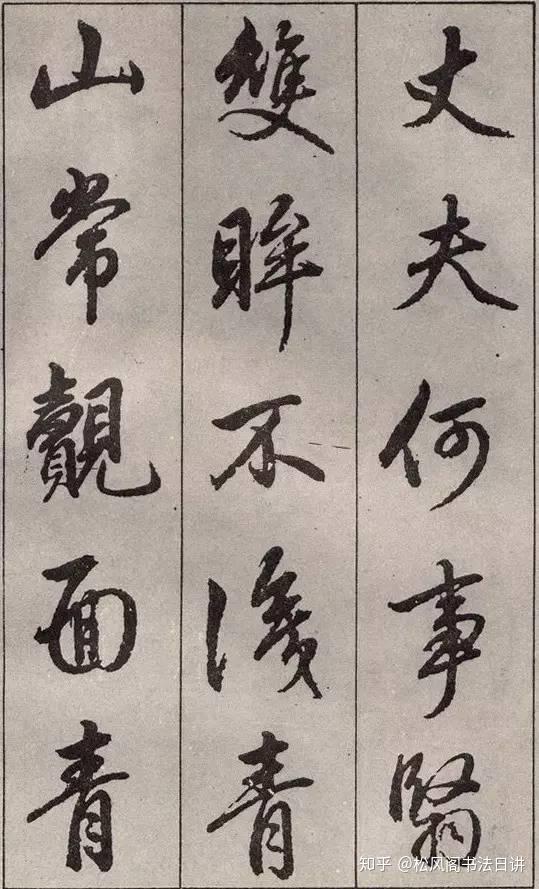 丈夫何事翳
雙眸不識青
山常覿面青
知乎 @松风阁书法日讲